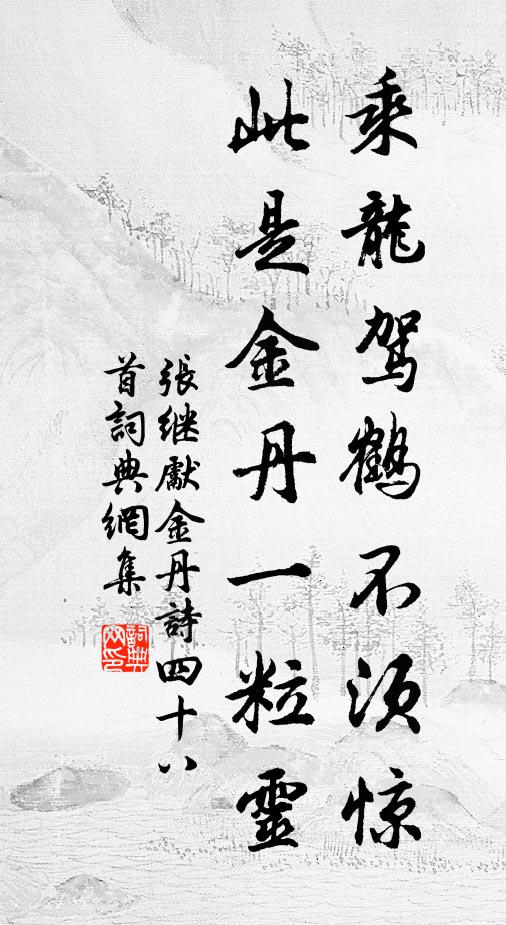 乘龍駕鶴不須惊
此是金丹一粒靈
張继獻金丹詩四十八
首詞典網集
詞典网印